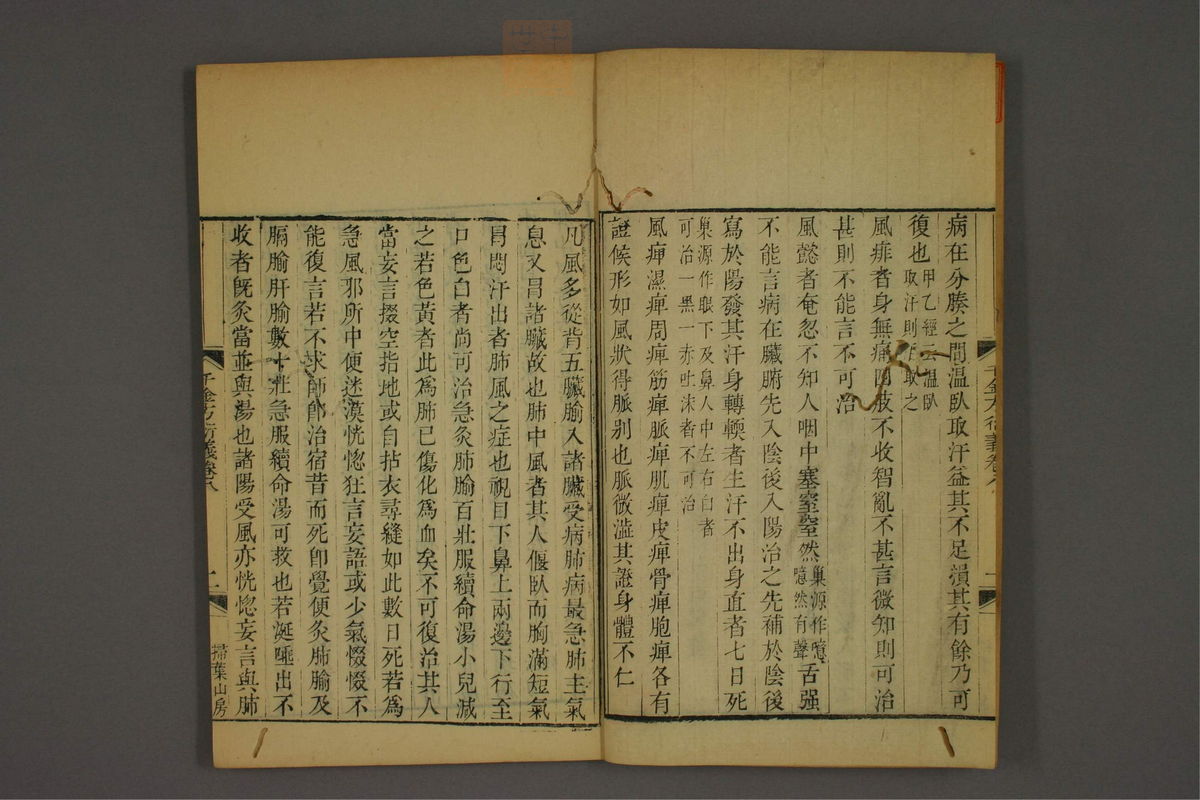 病在分腠之間温臥取汗益其不足損其有餘乃可
復也甲乙經云温臥取汗則巨取之
風痱者身無痛四肢不收智亂不甚言微知則可治
甚則不能言不可治
風懿者奄忽不知人咽中塞窒窒然巢源作噫噫然有聲舌强
不能言病在臟腑先入陰後入陽治之先補於陰後
寫於陽發其汗身轉輭者生汗不出身直者七日死
巢源作眼下及鼻人中左右白者可治一黑一赤吐沫者不可治
風痺濕痺周痺筋痺脈痺肌痺皮痺骨痺胞痺各有
證候形如風狀得脈别也脈微澁其證身體不仁
凡風多從背五臟腧入諸臟受病肺病最急肺主氣
息又冒諸臟故也肺中風者其人偃臥而胸滿短氣
冒悶汗出者肺風之症也視目下鼻上兩邊下行至
口色白者尚可治急灸肺腧百壯服續命湯小兒減
之若色黃者此爲肺已傷化爲血矣不可復治其人
當妄言掇空指地或自拈衣尋縫如此數日死若爲
急風邪所中便迷漠恍惚狂言妄語或少氣惙惙不
能復言若不求師卽治宿昔而死卽覺便灸肺腧及
膈腧肝腧數十壯急服續命湯可救也若涎唾出不
收者旣灸當並與湯也諸陽受風亦恍惚妄言與肺
千金方衍義卷八
二
掃葉山房